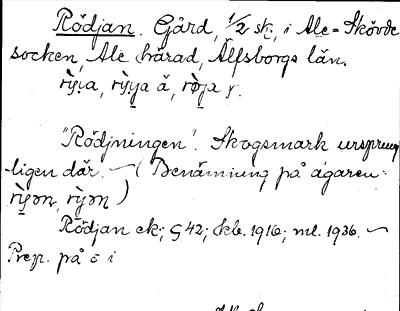 Rödjan. Gård, 1/2 sk., i Ale-Skövde
socken, Ale härad, Älfsborgs län.
"Rödjningen". Skogsmark ursprung-
ligen där. – (Benämning på ägaren:
Rödjan ek; G 42; kb. 1916; ml. 1936. –
Prep. på o i